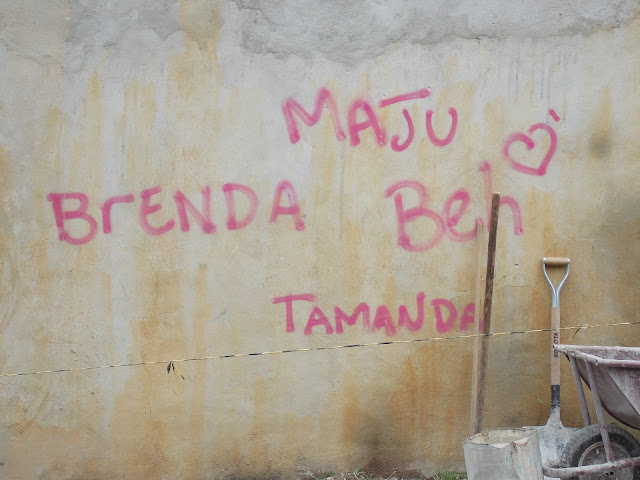 MAJU
BrENDA Beh
TAMANDA